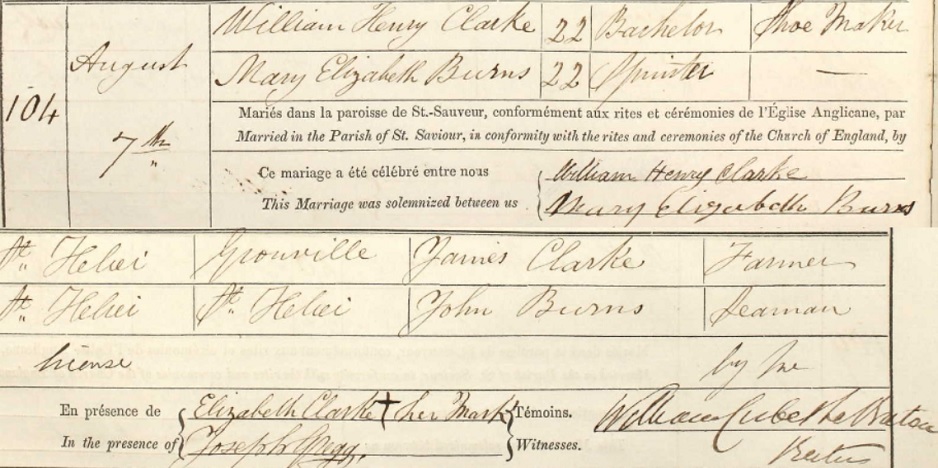 William Henry Clarke 22 Bachelor Shoe Maker
August
Mary Elizabeth Burns 22 Spinster —
104
Mariés dans la paroisse de St.-Sauveur, conformément aux rites et cérémonies de l'Église Anglicane, par
7th
Married in the Parish of St. Saviour, in conformity with the rites and ceremonies of the Church of England, by
Ce mariage a été célébré entre nous William Henry Clarke
This Marriage was solemnized between us Mary Elizabeth Burns
St. Helier Grouville James Clarke Farmer
St. Helier St. Helier John Burns Seaman
license by me
En présence de Elizabeth Clarke + her Mark Témoins.
William Breton
In the presence of Joseph Gregg. Witnesses.